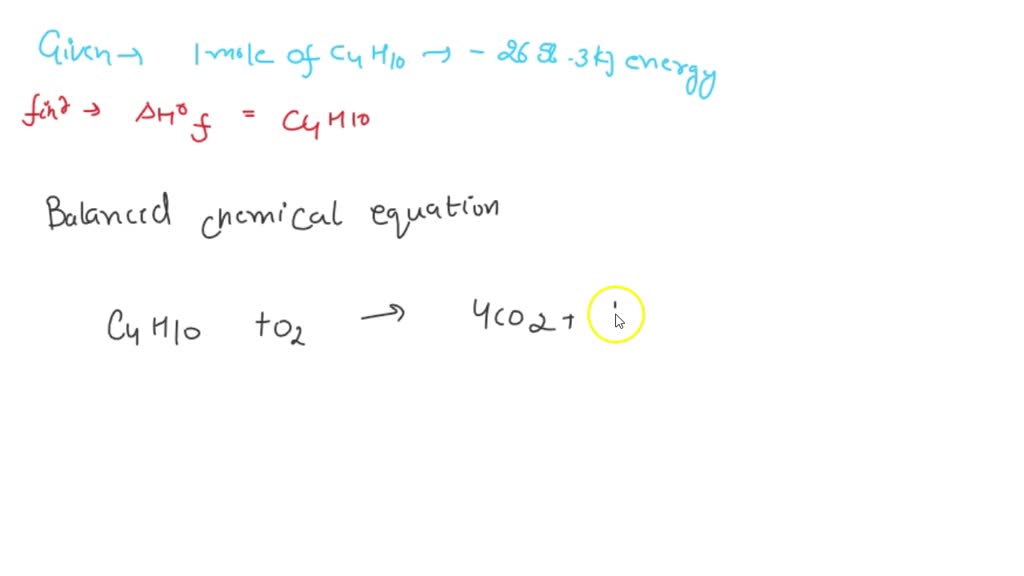 Given → 1 mole of C4H10 → - 2658.3 kJ energy
find → ΔH°f = C4H10
Balanced chemical equation
C4H10 + O2 → 4CO2 +